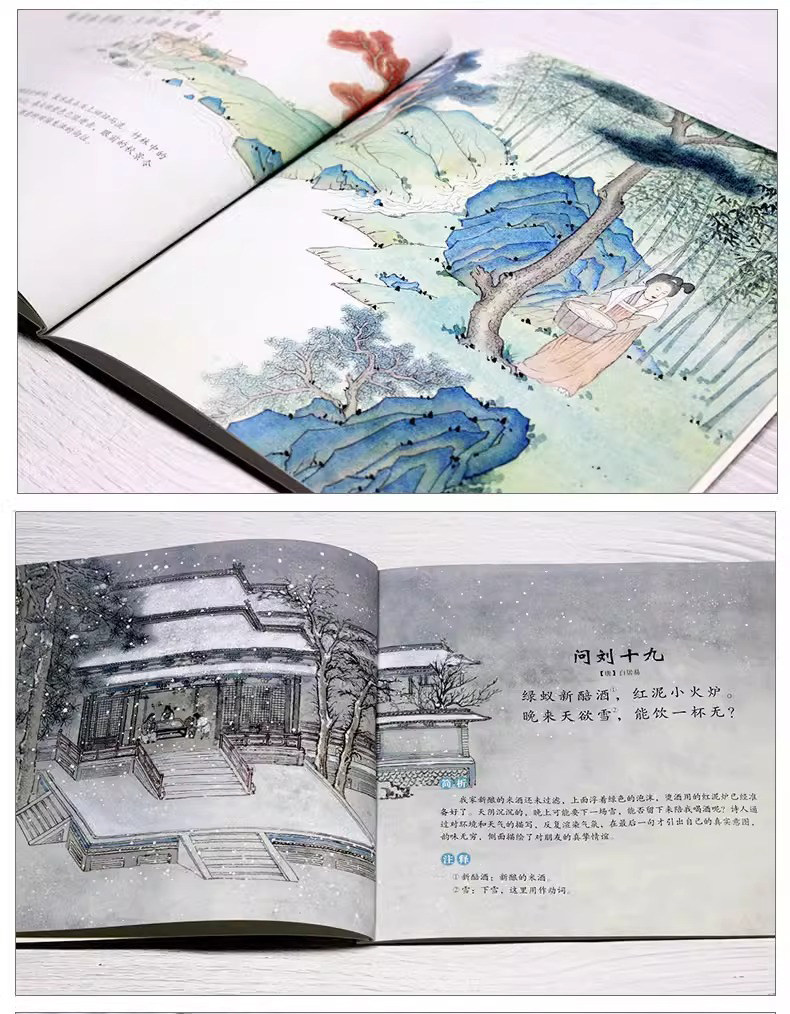 问刘十九
【唐】白居易
绿蚁新醅酒①，红泥小火炉。
晚来天欲雪②，能饮一杯无？
简析
我家新酿的米酒还未过滤，上面浮着绿色的泡沫，烫酒用的红泥炉已经准
备好了。天阴沉沉的，晚上可能要下一场雪，能否留下来陪我喝酒呢？诗人通
过对环境和天气的描写，反复渲染气氛，在最后一句才引出自己的真实意图，
韵味无穷，侧面描绘了对朋友的真挚情谊。
注释
①新醅酒：新酿的米酒。
②雪：下雪，这里用作动词。